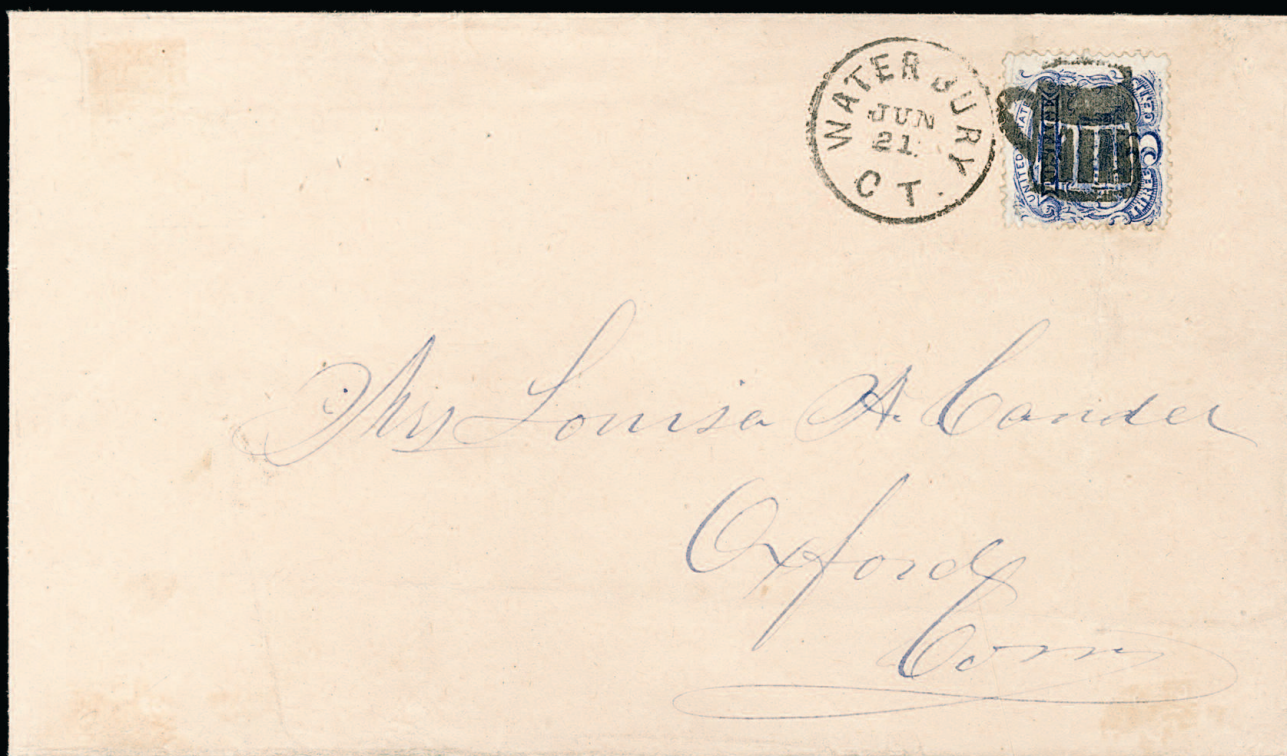 WATERBURY
JUN
21.
CT.
UNITED
Mrs Louisa A. Candee
Oxford
Conn